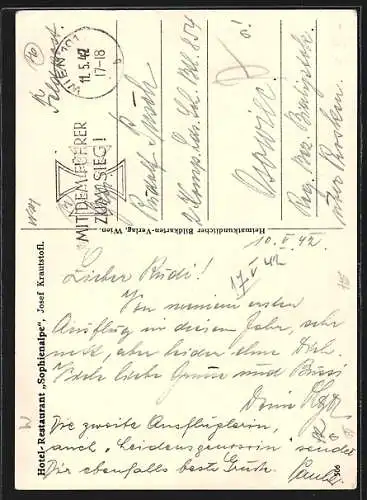 Feldpost
WIEN 101
11.5.42
17-18
b
MIT DEM FÜHRER
ZUM SIEG!
Rudolf
Osowiec
Reg. Bez. Bialystok
über
Heimatkundlicher Bildkarten-Verlag, Wien.
Hotel-Restaurant „Sophienalpe", Josef Krautstofl.
506
10. V. 42.
17/V 42
Lieber Rudi!
Von meinem ersten
Ausflug in diesem Jahr, sehr
nett, aber leider ohne Dich.
Viele liebe Grüsse und Bussi
Deine Olga
Die zweite Ausflüglerin,
auch „Leidensgenossin" sendet
Dir ebenfalls beste Grüsse.